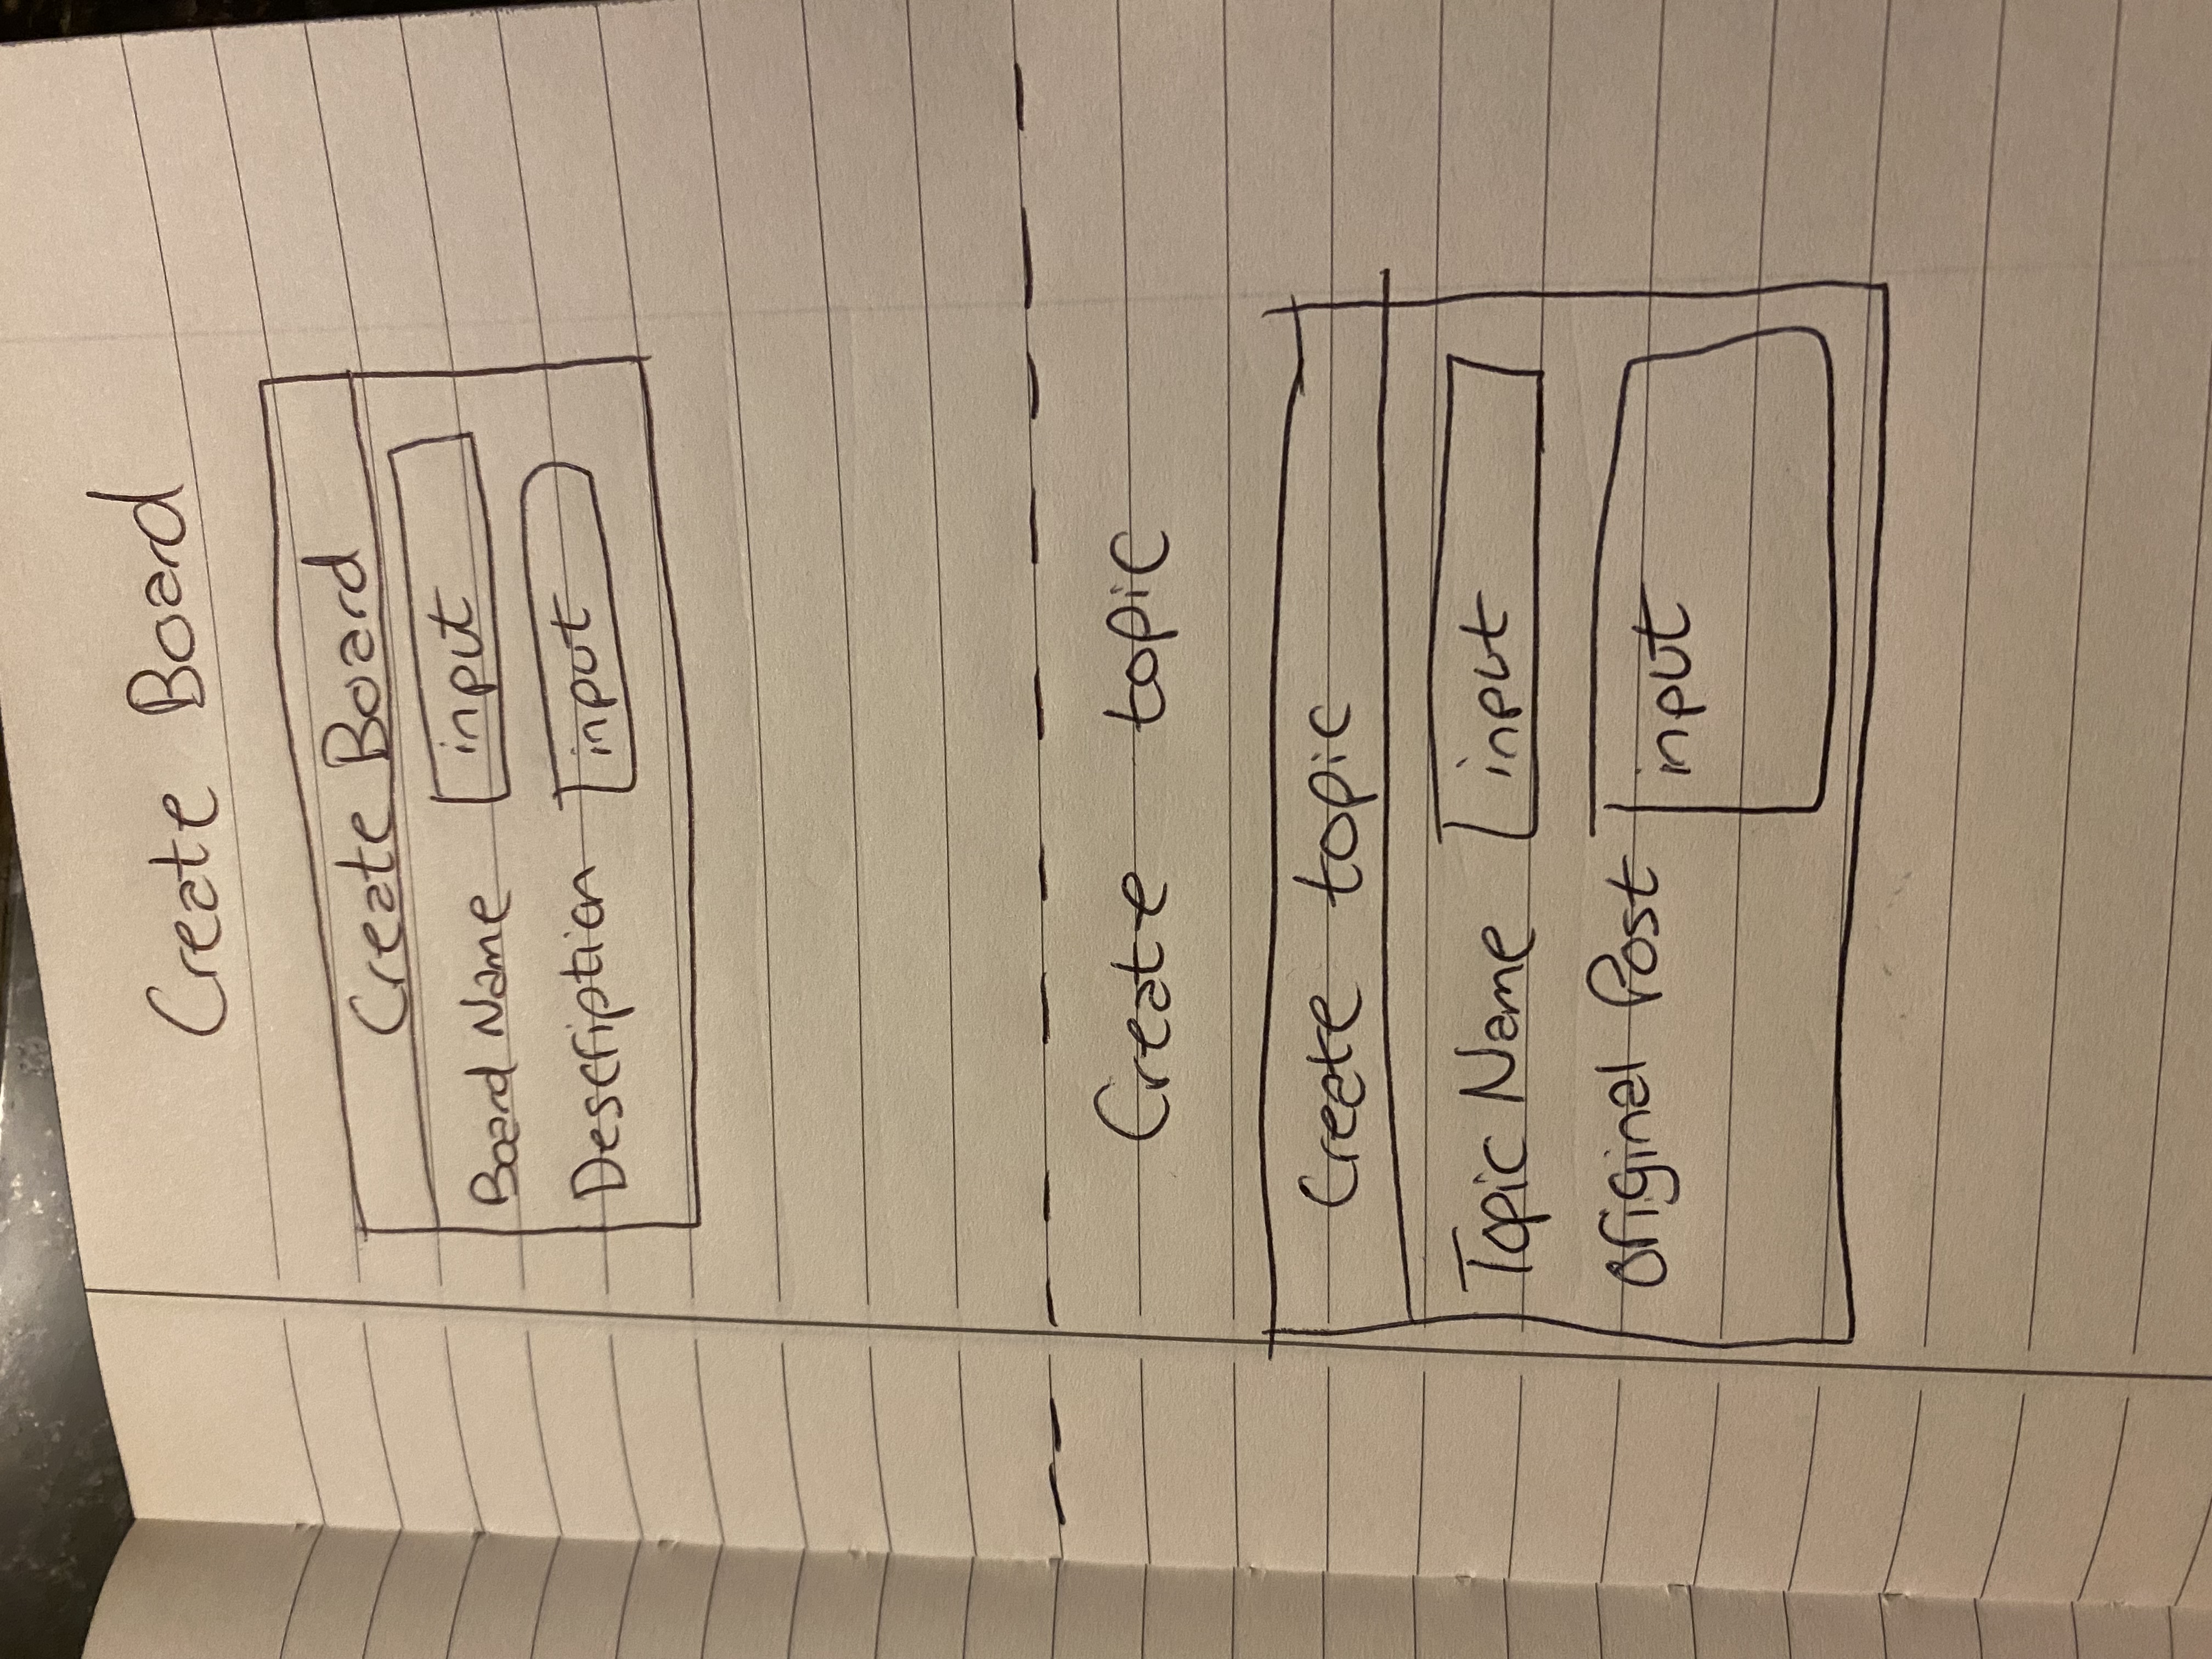 Create Board
Create Board
Board Name input
Description input
Create topic
Create topic
Topic Name input
Original Post input